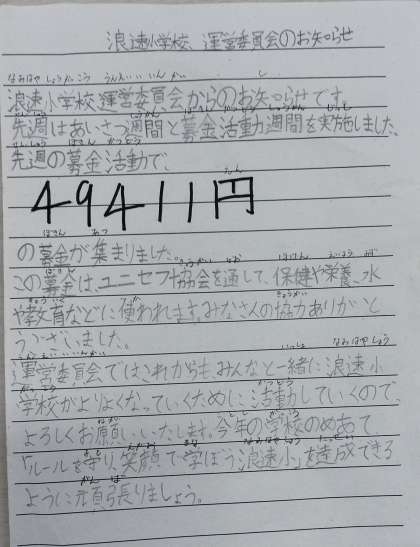 浪速小学校、運営委員会のお知らせ
なみはやしょうがっこう うんえいいいんかい し
浪速小学校運営委員会からのお知らせです。
先週はあいさつ週間と募金活動週間を実施しました。
先週の募金活動で、
えん
49411円
ぼきん あつ
の募金が集まりました。
この募金は、ユニセフ協会を通して、保健や栄養、水
や教育などに使われます。みなさんの協力ありがと
うございました。
うんえいいいんかい いっしょ なみはやしょう
運営委員会ではこれからもみんなと一緒に浪速小
学校がよりよくなっていくために活動していくので、
よろしくお願いいたします。今年の学校のめあて
「ルールを守り、笑顔で学ぼう浪速小」を達成できる
がんば
ように頑張りましょう。